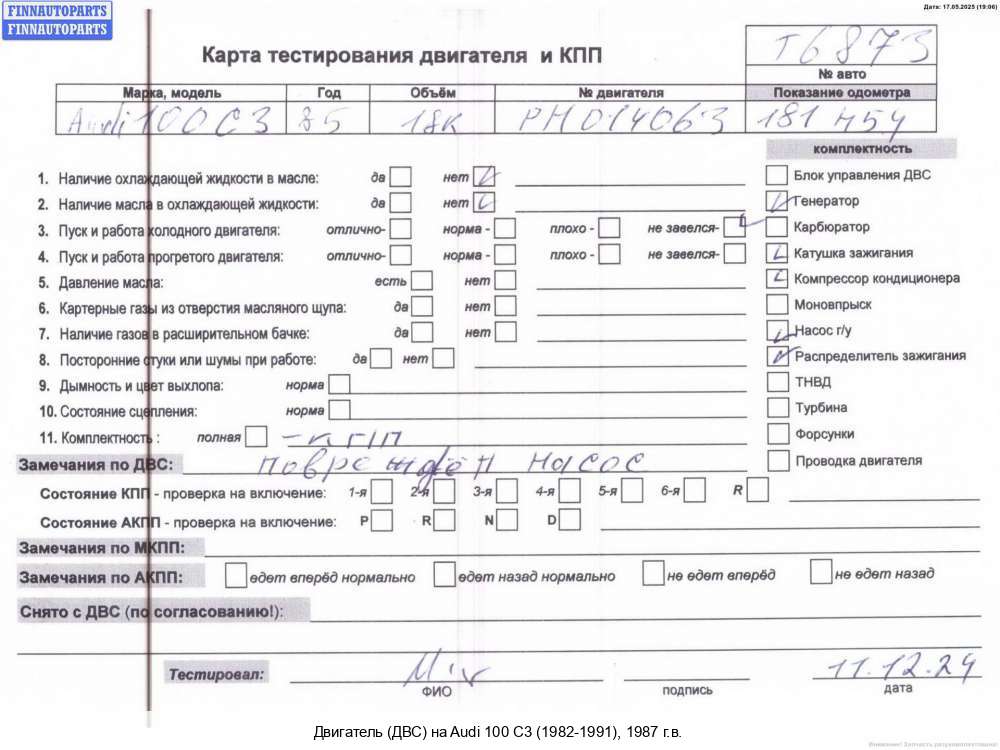 FINNAUTOPARTS
FINNAUTOPARTS
Дата: 17.05.2025 (19:06)
Карта тестирования двигателя и КПП
T6873
№ авто
Марка, модель Год Объём № двигателя Показание одометра
Audi 100 C3 85 1.8K PH014063 181 459
комплектность
1. Наличие охлаждающей жидкости в масле: да нет
Блок управления ДВС
2. Наличие масла в охлаждающей жидкости: да нет
Генератор
3. Пуск и работа холодного двигателя: отлично- норма - плохо - не завелся-
Карбюратор
4. Пуск и работа прогретого двигателя: отлично- норма - плохо - не завелся-
Катушка зажигания
5. Давление масла: есть нет
Компрессор кондиционера
6. Картерные газы из отверстия масляного щупа: да нет
Моновпрыск
7. Наличие газов в расширительном бачке: да нет
Насос г/у
8. Посторонние стуки или шумы при работе: да нет
Распределитель зажигания
9. Дымность и цвет выхлопа: норма
ТНВД
10. Состояние сцепления: норма
Турбина
11. Комплектность : полная
Форсунки
Замечания по ДВС: повреждён насос
Проводка двигателя
Состояние КПП - проверка на включение: 1-я 2-я 3-я 4-я 5-я 6-я R
Состояние АКПП - проверка на включение: P R N D
Замечания по МКПП:
Замечания по АКПП: едет вперёд нормально едет назад нормально не едет вперёд не едет назад
Снято с ДВС (по согласованию!):
Тестировал:
11.12.24
ФИО подпись дата
Двигатель (ДВС) на Audi 100 C3 (1982-1991), 1987 г.в.